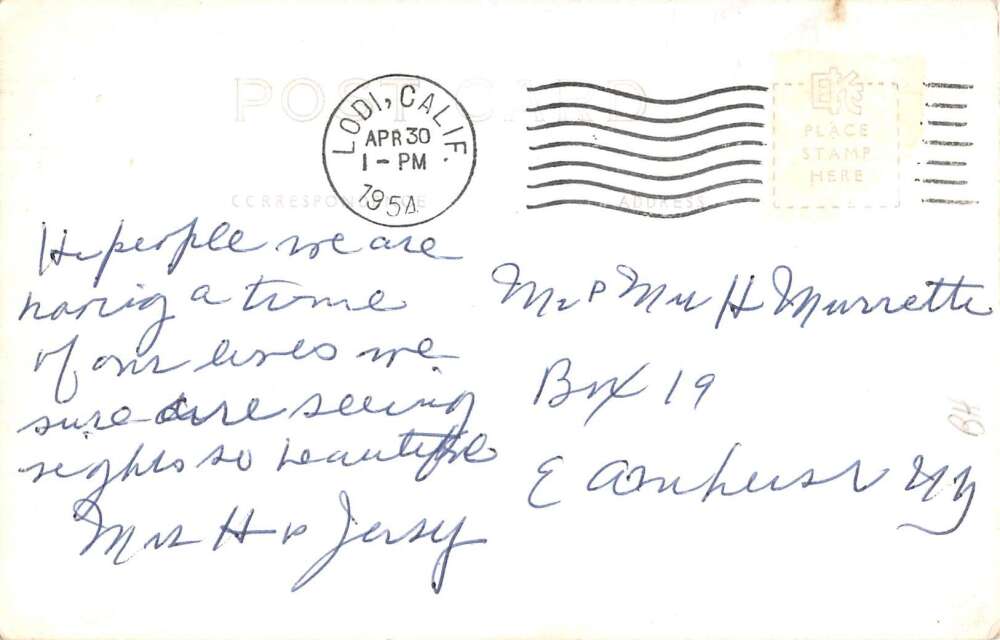 POST CARD
LODI, CALIF.
APR 30
1 - PM
1954
PLACE
STAMP
HERE
CORRESPONDENCE
ADDRESS
Hi people we are
having a time
of our lives we
sure are seeing
sights so beautiful
Mrs H & Jersy
Mr & Mrs H Murrette
Box 19
E Amherst NY
BH